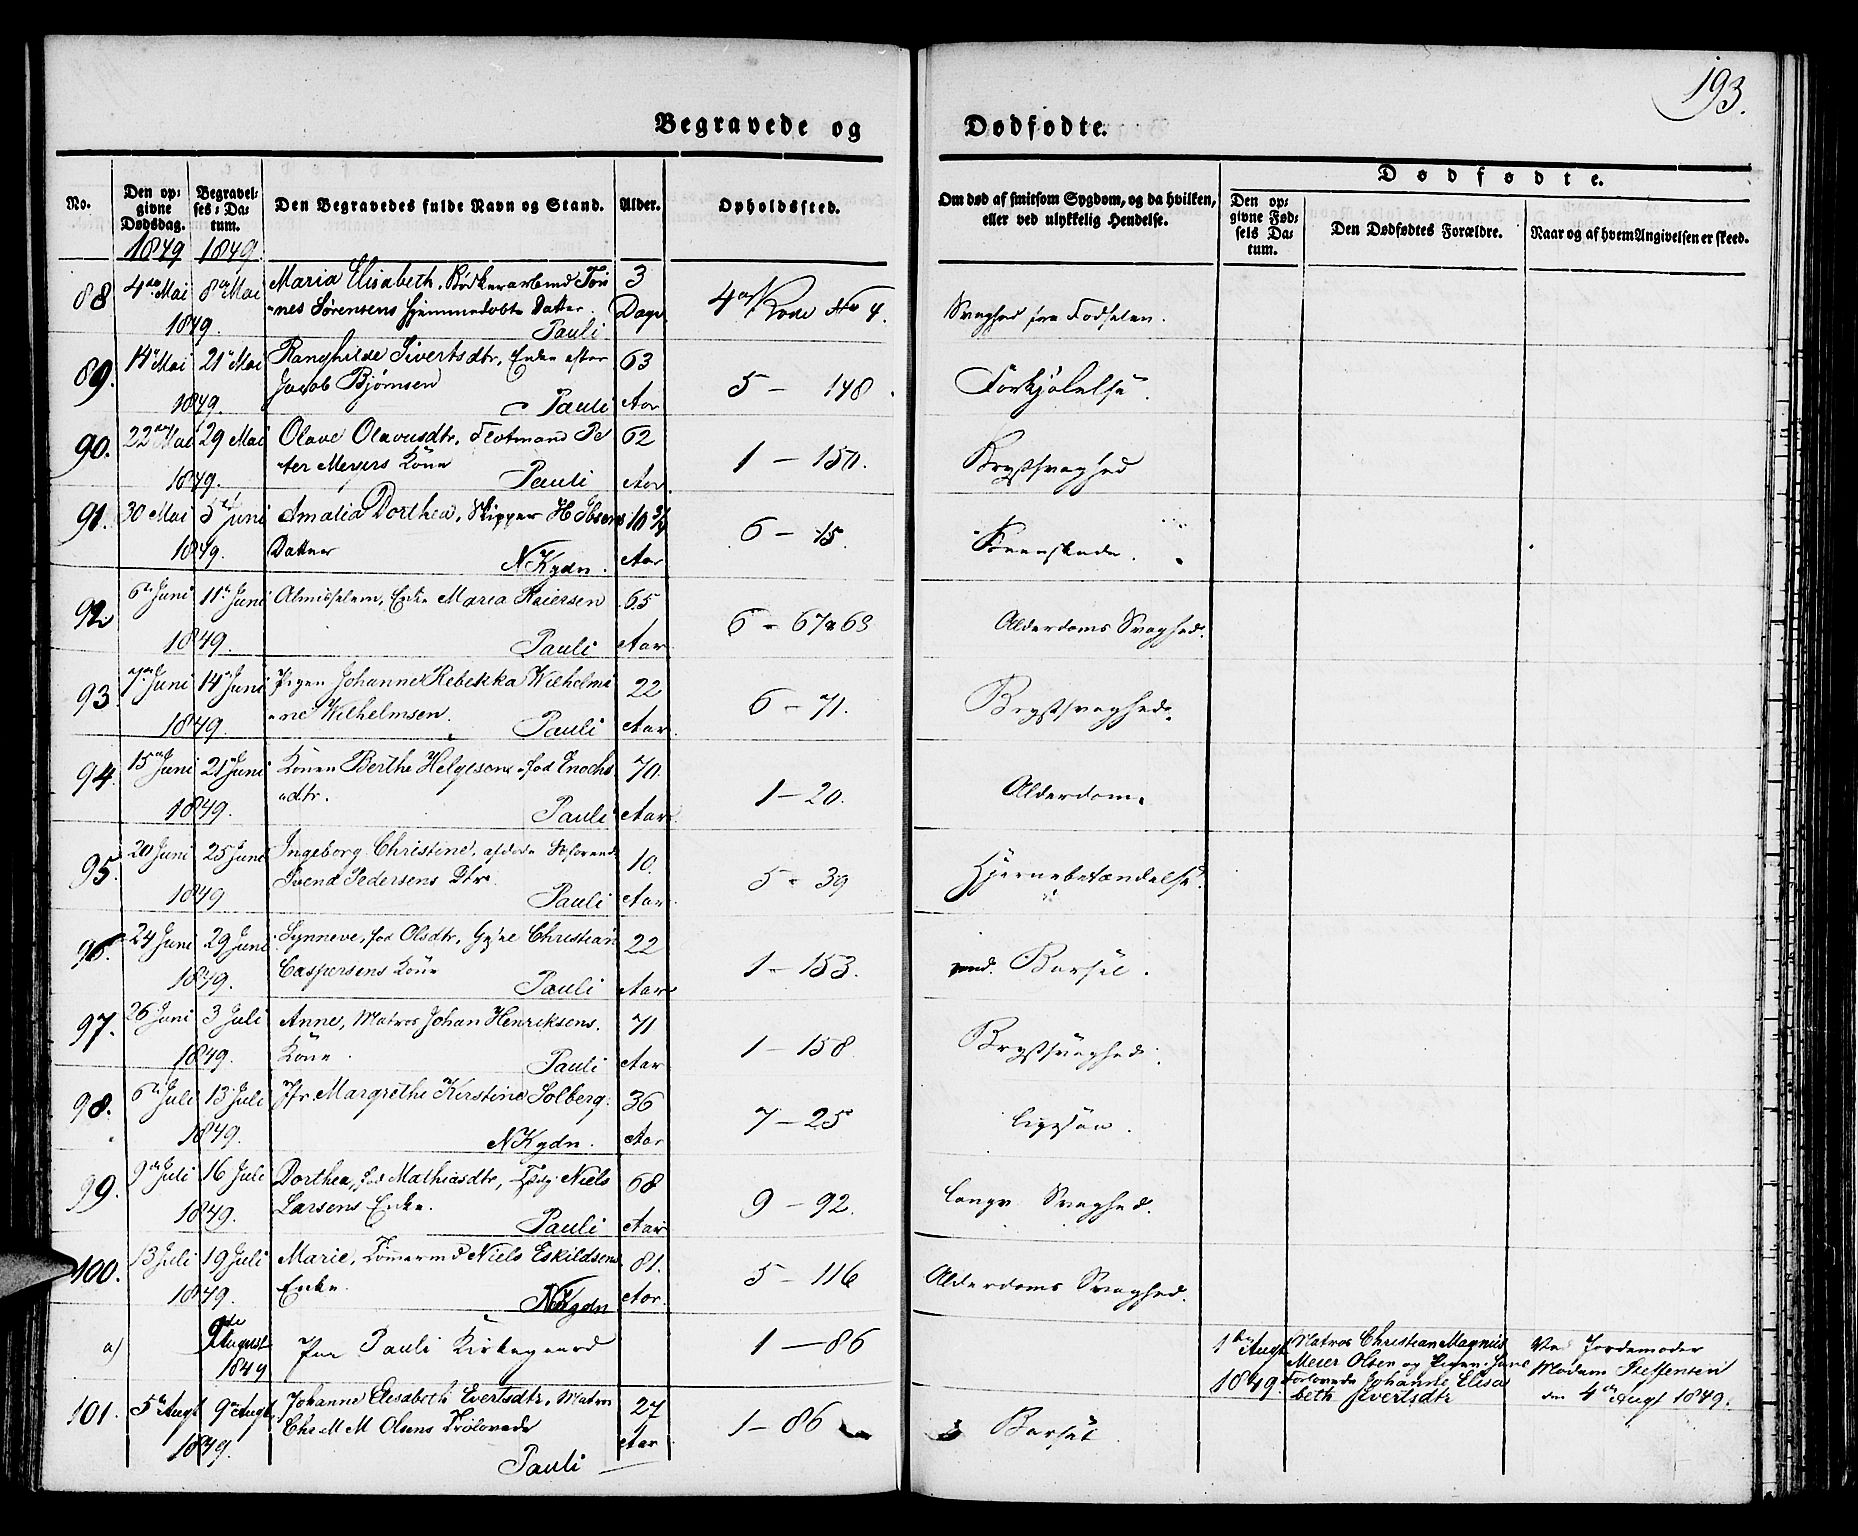 193.
Begravede og Dødfødte.
No.
Den opgivne Dødsdag.
Begravelses-Datum.
Den Begravedes fulde Navn og Stand.
Alder.
Opholdssted.
Om død af smitsom Sygdom, og da hvilken,
eller ved ulykkelig Hendelse.
Dødfødte.
Den opgivne Fødsels Datum.
Den Dødfødtes Forældre.
Naar og af hvem Angivelsen er skeed.
1849 1849.
88 4de Mai 8de Mai Maria Elisabeth, Bødkerarbmd Tön 3
nes Sørensens hjemmedøbte Datter. Dage 4de Rode No 4. Svaghed fra Fødselen.
1849. Pauli
89. 14 Mai 21 Mai Ranghilde Sivertsdtr, Enke efter 63
Jacob Bjørnsen 5 - 148. Forkjølelse.
1849. Pauli Aar
90. 22de Mai 29 Mai Olave Olavusdtr, Flotmand Pe 62
ter Meyers Kone 1 - 150. Brystsvaghed
1849. Pauli Aar.
91. 30 Mai 5te Juni Amalia Dorthea, Skipper H Ibsens 10 3/4
Datter 6 - 15.
1849. NKgdn. Aar
92. 6te Juni 11te Juni Almisselem, Enke Maria Reiersen 65
6 - 67 & 68 Alderdoms Svaghed.
1849. Pauli Aar
93. 7de Juni 14de Juni Pigen Johanne Rebekka Wilhelmi 22
ne Wilhelmsen. 6 - 71. Brystsvaghed.
1849. Pauli Aar.
94. 15de Juni 21de Juni Konen Berthe Helgesen, fød Enochs 70.
dtr. 1 - 20. Alderdom.
1849. Pauli Aar.
95. 20 Juni 25 Juni Ingeborg Christine, afdøde Søfarende 10.
Svend Pedersens Dtr. 5 - 39 Hjernebetændelse.
1849 Pauli Aar.
96. 24 Juni 29 Juni Synneve, fød Olsdtr, Christian 22
Caspersens Kone 1 - 153. Barsel.
1849. Pauli Aar.
97. 26 Juni 3 Juli Anne, Matros Johan Henriksens. 71
Kone. 1 - 158. Brystsvaghed.
1849. Pauli Aar
98. 6te Juli 13 Juli Jfr. Margrethe Kirstine Solberg. 36
7 - 25
1849. NKgdn. Aar
99. 9de Juli 16 Juli Dorthea, fød Mathiasdtr, Niels 68
Larsens Enke. 9 - 92. Svaghed.
1849. Pauli Aar
100. 13 Juli 19 Juli Marie, Tømmermd Niels Eskildsens 81.
Enke. 5 - 116 Alderdoms Svaghed.
1849. NKgdn Aar.
a) 9de August 1849 Paa Pauli Kirkegaard 1 - 86
1ste Augt 1849. Matros Christian Magnus
Meier Olsen og Pigen hans
Forlovede Johanne Elisa
beth Evertsdtr
Ved Jordemoder
Madam Steffensen
den 4de Augt 1849.
101. 5te Augt 9de Augt Johanne Elisabeth Evertsdtr, Matros 27
Chr M M Olsens Trolovede 1 - 86 Barsel.
1849. Aar
Pauli